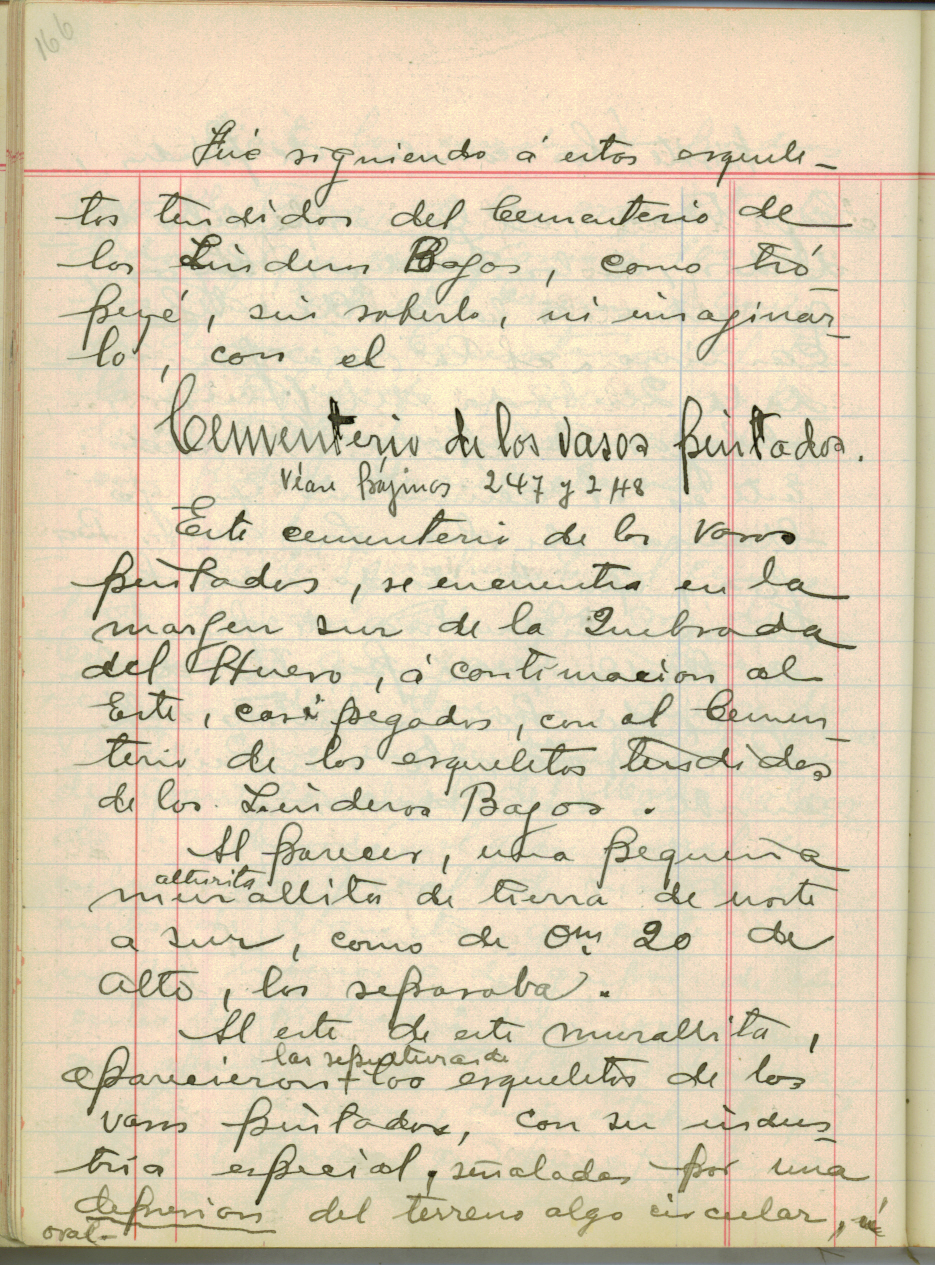 166
Fué siguiendo á estos esquele-
tos tendidos del Cementerio de
los Linderos Bajos, como tro-
pecé, sin saberlo, ni imaginar-
lo, con el
Cementerio de los vasos pintados.
Véase páginas 247 y 248
Este cementerio de los vasos
pintados, se encuentra en la
margen sur de la Quebrada
del Hueso, á continuacion al
Este, casi pegados, con el Cemen-
terio de los esqueletos tendidos
de los Linderos Bajos.
Al parecer, una pequeña
alturita
murallita de tierra de norte
a sur, como de 0m, 20 de
alto, los separaba.
Al este de este murallita,
las sepulturas de
aparecieron + los esqueletos de los
vasos pintados, con su indus-
tria especial, señaladas por una
depresion del terreno algo circular, ú
oval-